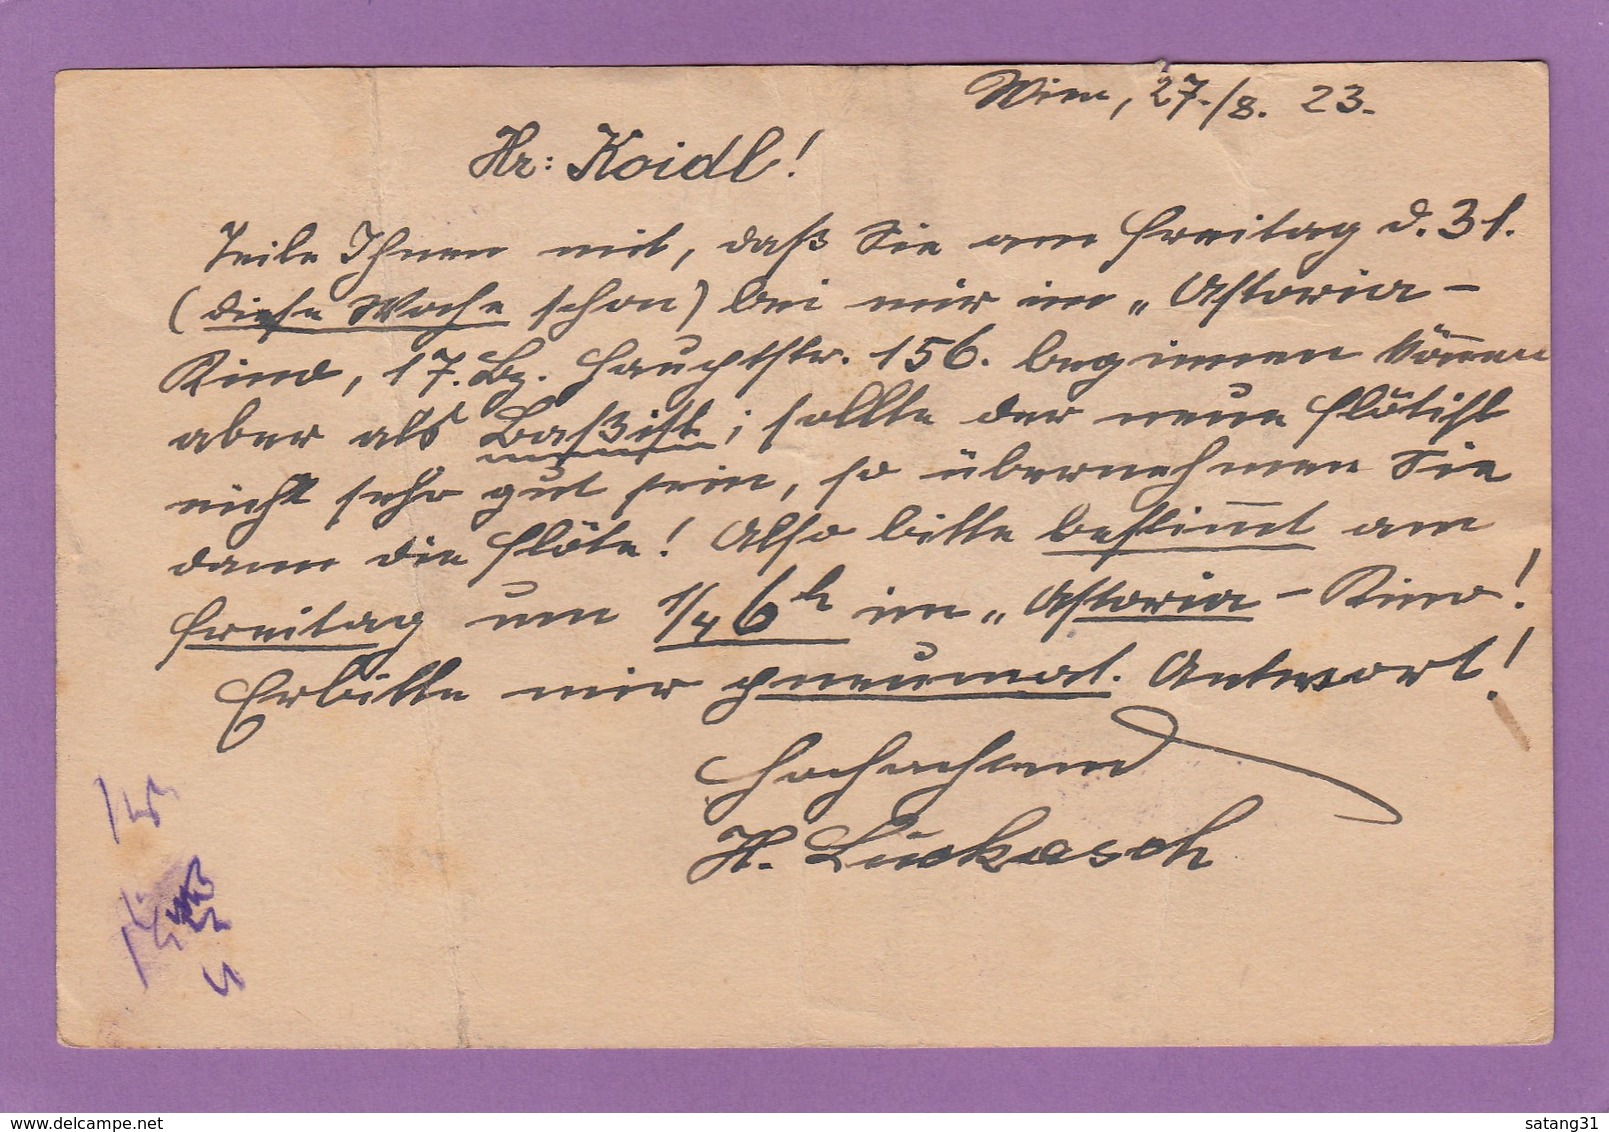 Wien, 27./8. 23.
Hr: Koidl!
Teile Ihnen mit, daß Sie am Freitag d. 31.
(diese Woche schon) bei mir im „Astoria-
Kino, 17. Bz. Hauptstr. 156. beginnen können
aber als Baßist; sollte der neue Flötist
nicht sehr gut sein, so übernehmen Sie
dann die Flöte! Also bitte bestimmt am
Freitag um 1/4 6h im „Astoria-Kino!
Erbitte mir pneumat. Antwort!
Hochachtend
H. Luckasch
delcampe.net
satang31